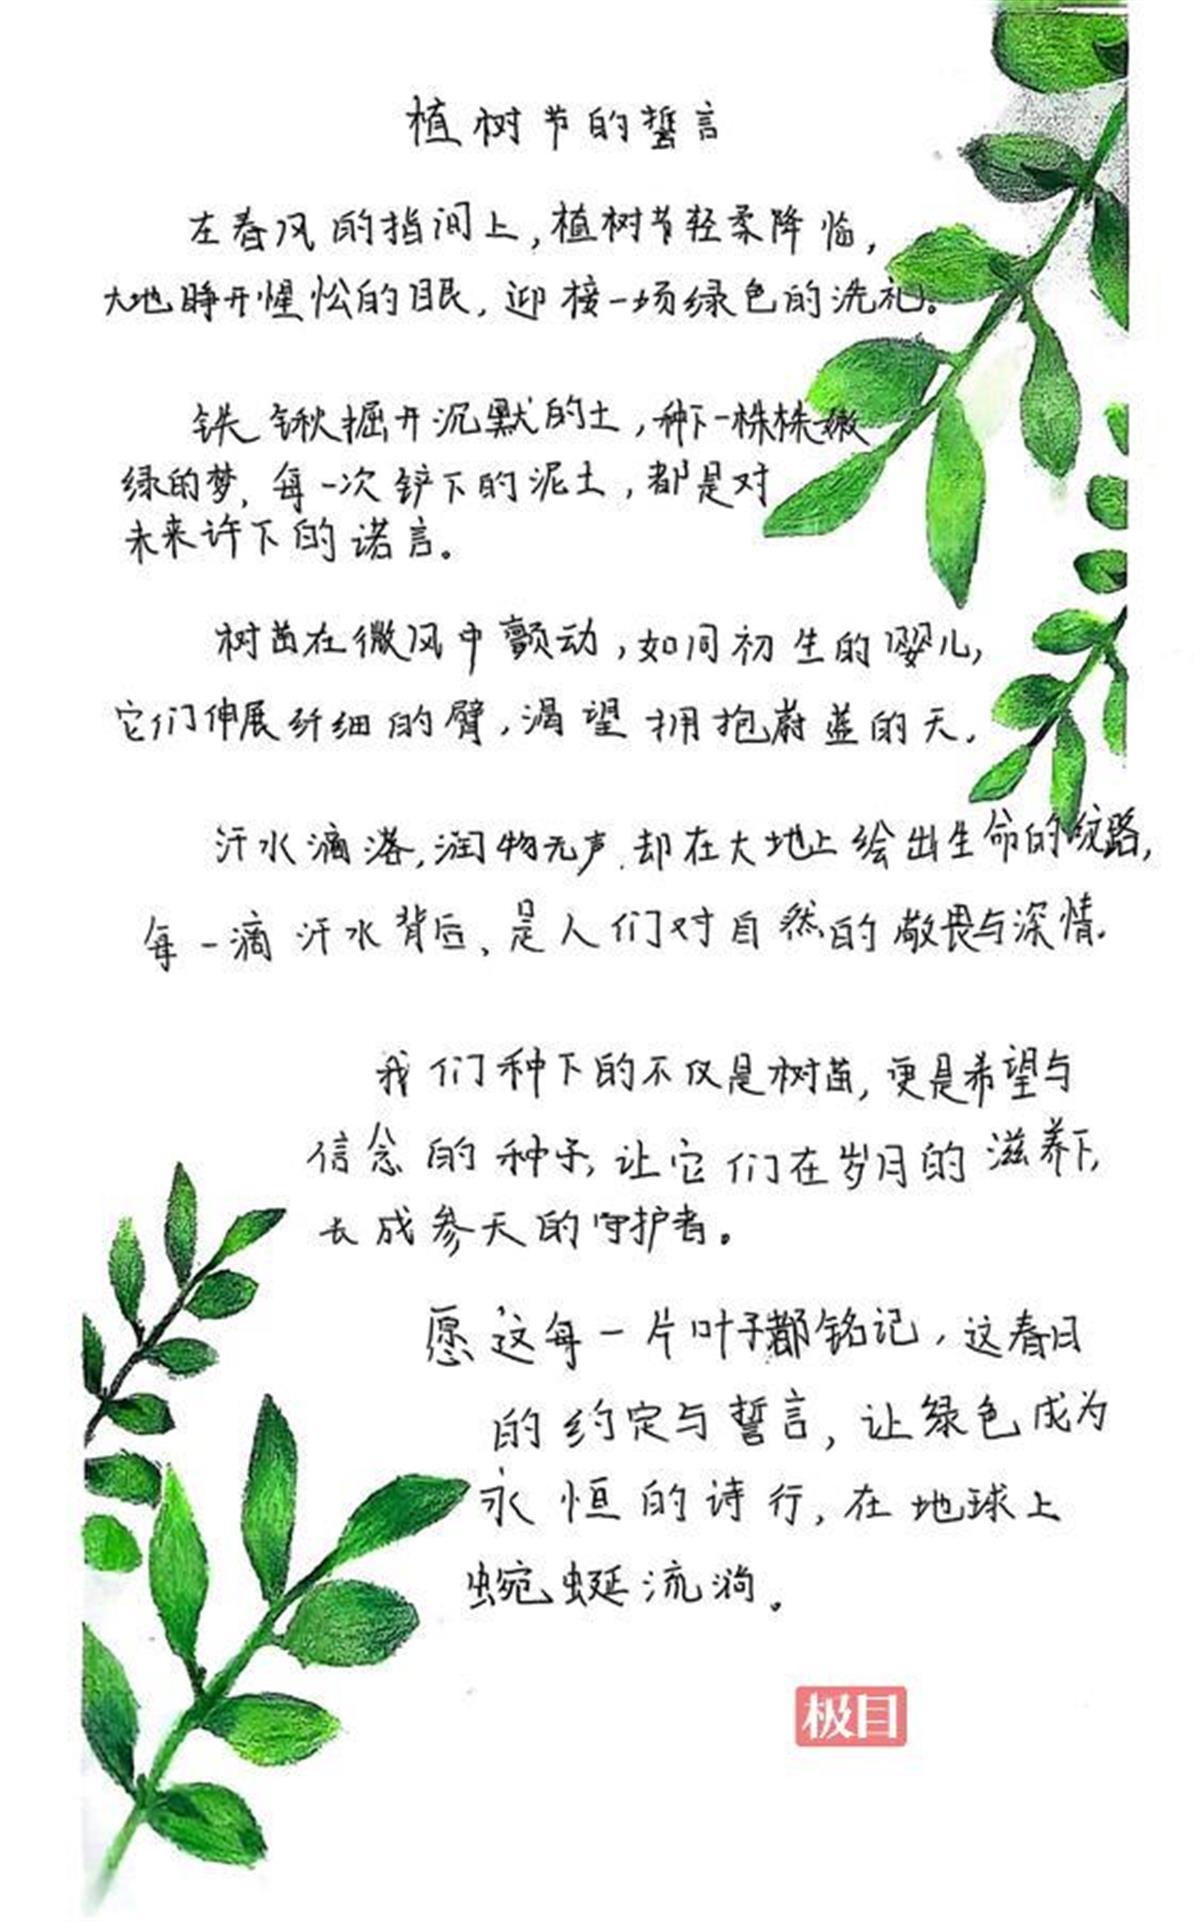 植树节的誓言
在春风的指间上，植树节轻柔降临，
大地睁开惺忪的眼，迎接一场绿色的洗礼。
铁锹掘开沉默的土，种下一株株嫩
绿的梦，每一次铲下的泥土，都是对
未来许下的诺言。
树苗在微风中颤动，如同初生的婴儿，
它们伸展纤细的臂，渴望拥抱蔚蓝的天，
汗水滴落，润物无声，却在大地上绘出生命的纹路，
每一滴汗水背后，是人们对自然的敬畏与深情。
我们种下的不仅是树苗，更是希望与
信念的种子，让它们在岁月的滋养下，
长成参天的守护者。
愿这每一片叶子都铭记，这春日
的约定与誓言，让绿色成为
永恒的诗行，在地球上
蜿蜒流淌。
极目